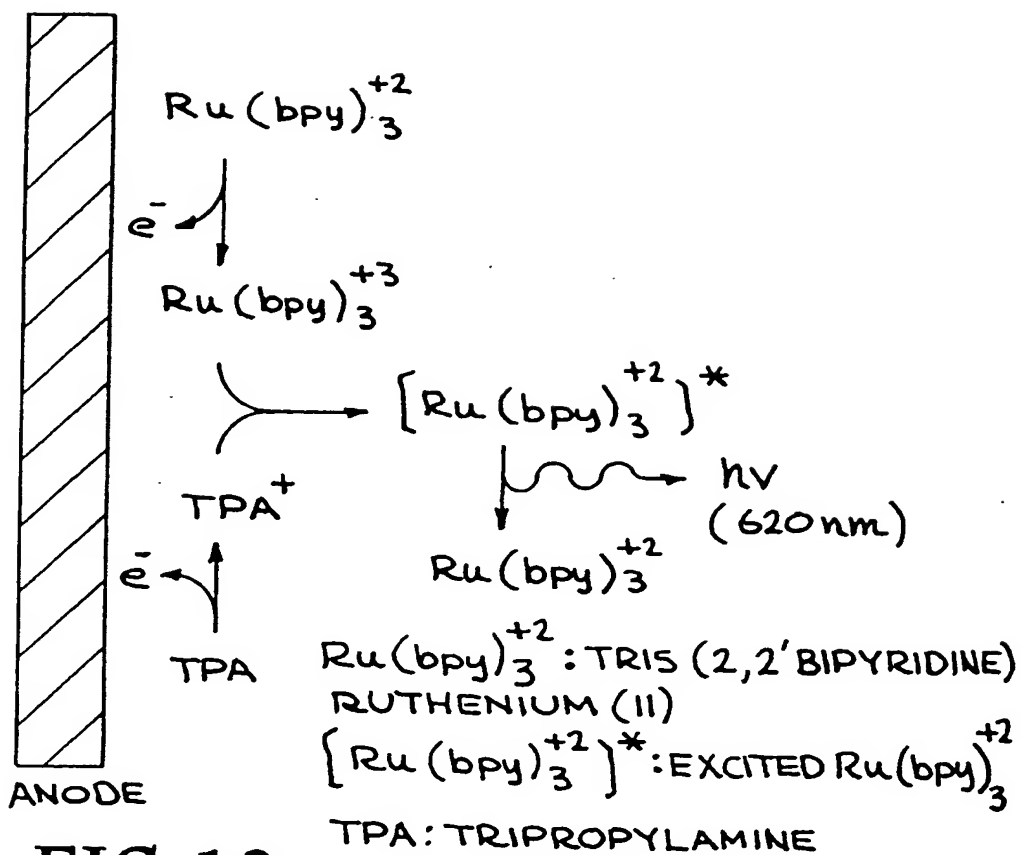 Ru(bpy)₃⁺²
e⁻
Ru(bpy)₃⁺³
[Ru(bpy)₃⁺²]*
hν
(620nm)
TPA⁺
e⁻
Ru(bpy)₃⁺²
TPA
Ru(bpy)₃⁺²: TRIS (2,2'BIPYRIDINE)
RUTHENIUM (II)
[Ru(bpy)₃⁺²]*: EXCITED Ru(bpy)₃⁺²
ANODE
TPA: TRIPROPYLAMINE